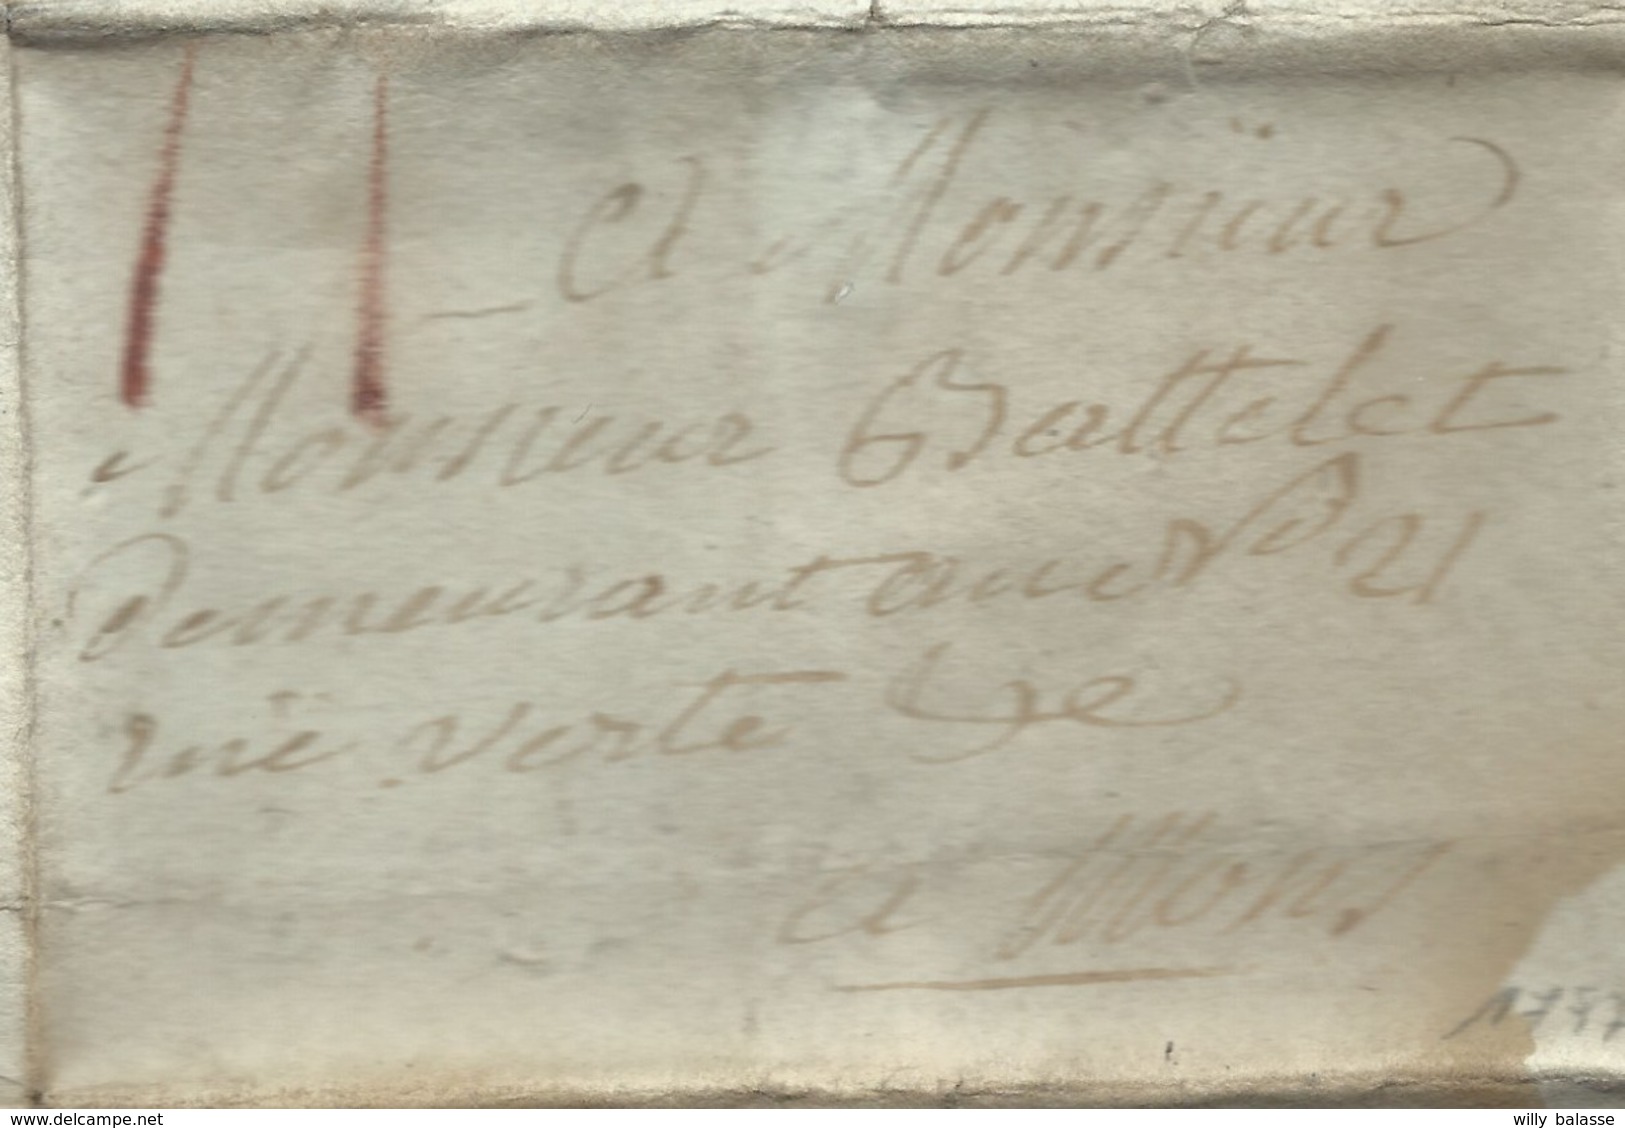 A Monsïeur
Monsieur Battelet
demeurant au No 21
ruë verte
a Mons
1787
delcampe.net
willy balasse